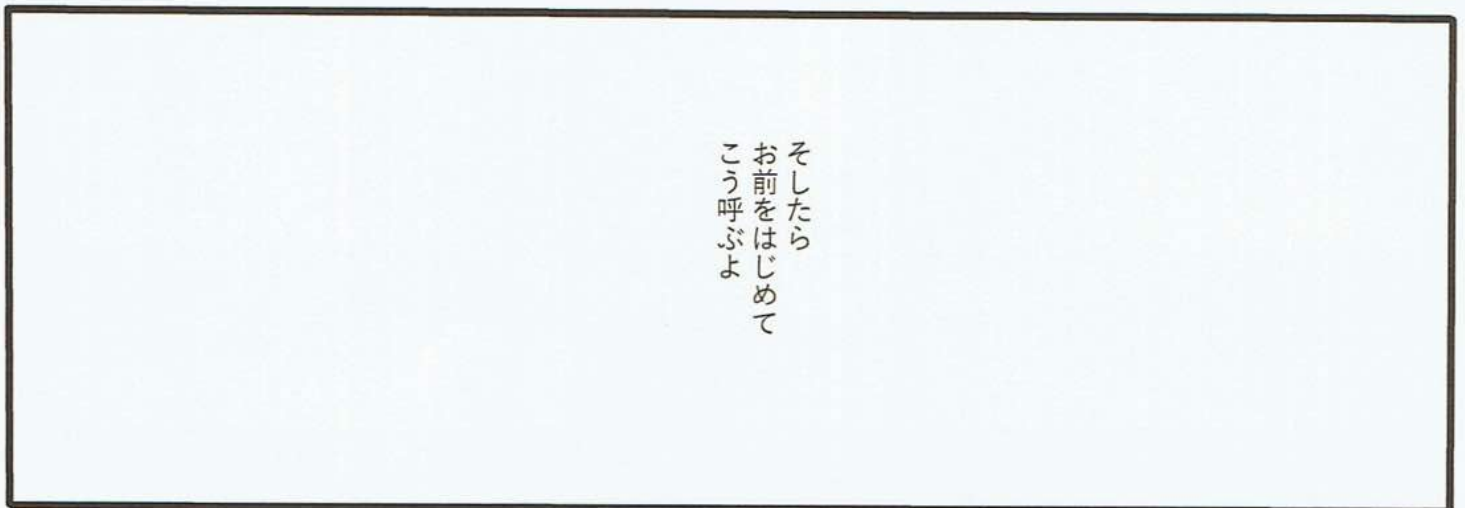 そしたら
お前をはじめて
こう呼ぶよ